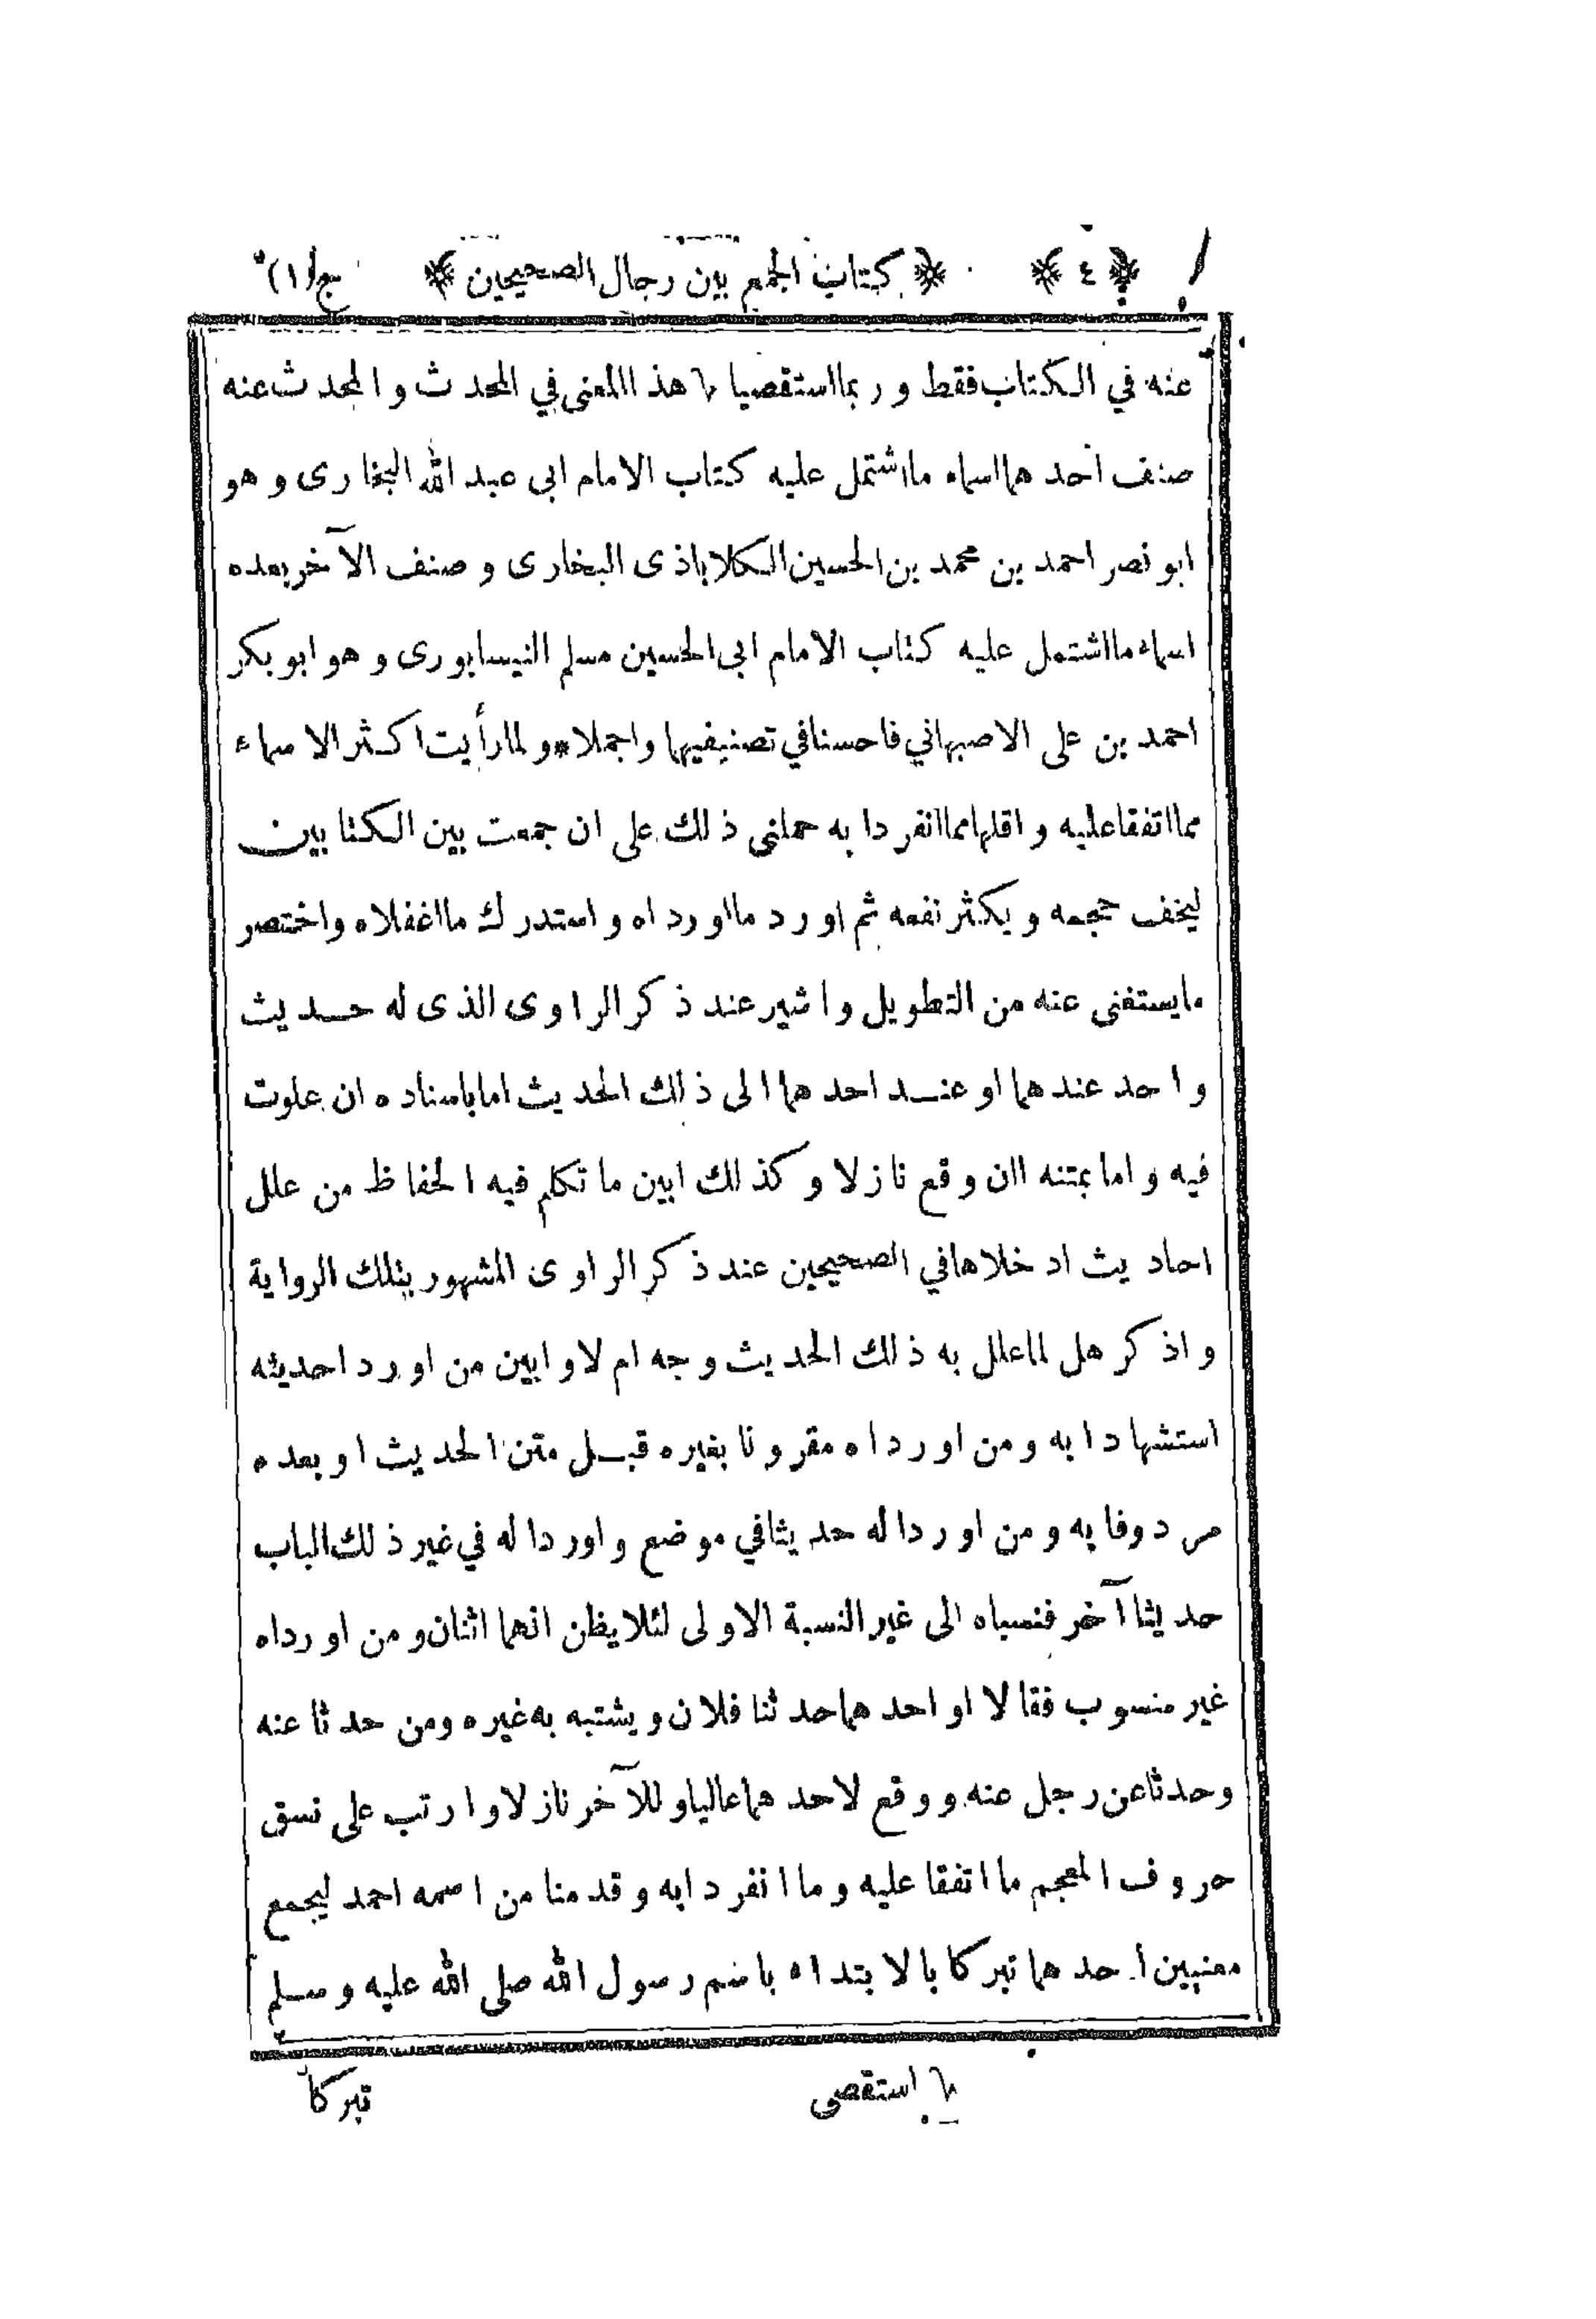 ﴿ ٤ ﴾ ﴿ كتاب الجمع بين رجال الصحيحين ﴾ ج(١)
عنه في الكتاب فقط و ربما استقصيا ٦ هذا المعنى في المحدث و المحدث عنه
صنف احدهما اسماء ما اشتمل عليه كتاب الامام ابى عبد الله البخارى و هو
ابو نصر احمد بن محمد بن الحسين الكلاباذى البخارى و صنف الآخر بعده
اسماء ما اشتمل عليه كتاب الامام ابى الحسين مسلم النيسابورى و هو ابو بكر
احمد بن على الاصبهاني فاحسنا في تصنيفيهما و اجملا * و لما رأيت اكثر الاسماء
مما اتفقا عليه و اقلها مما انفردا به حملنى ذلك على ان جمعت بين الكتابين
ليخف حجمه و يكثر نفعه ثم اورد ما اورداه و استدرك ما اغفلاه و اختصر
ما يستغنى عنه من التطويل و اشير عند ذكر الراوى الذى له حديث
واحد عندهما او عند احدهما الى ذلك الحديث اما باسناده ان علوت
فيه و اما بمتنه اان وقع نازلا و كذلك ابين ما تكلم فيه الحفاظ من علل
احاديث ادخلاها في الصحيحين عند ذكر الراوى المشهور بتلك الرواية
و اذكر هل لما علل به ذلك الحديث وجه ام لا و ابين من اوردا حديثه
استشهادا به و من اورداه مقرونا بغيره قبل متن الحديث او بعده
مردوفا به و من اوردا له حديثا في موضع و اوردا له في غير ذلك الباب
حديثا آخر فنسباه الى غير النسبة الاولى لئلا يظن انهما اثنان و من اورداه
غير منسوب فقالا او احدهما حدثنا فلان و يشتبه به غيره و من حدثا عنه
و حدثا عن رجل عنه و وقع لاحدهما عاليا و للآخر نازلا و ارتب على نسق
حروف المعجم ما اتفقا عليه و ما انفردا به و قدمنا من اسمه احمد ليجمع
معنيين احدهما تبركا بالابتداء باسم رسول الله صلى الله عليه و سلم
٦ استقصى
تبركا